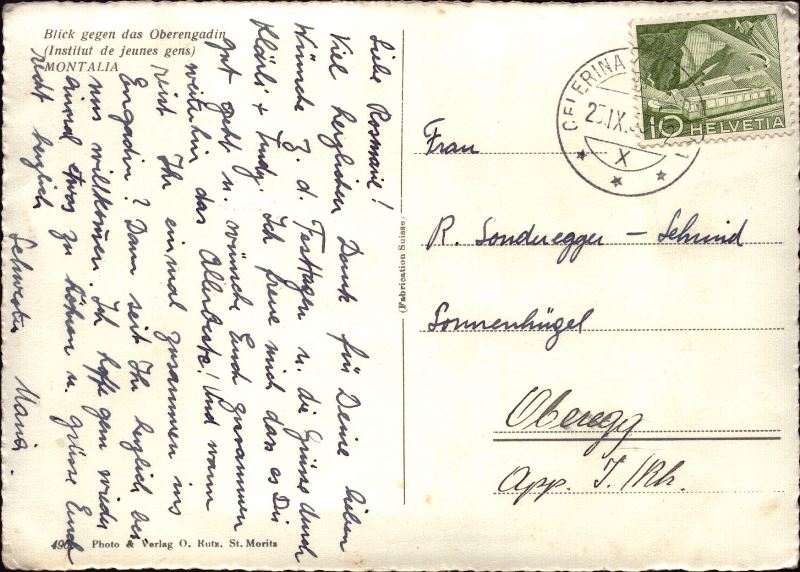 Blick gegen das Oberengadin
(Institut de jeunes gens)
MONTALIA
Liebe Rosmarie!
Viel herzlichen Dank für Deine lieben
Wünsche z. d. Festtagen u. die Grüsse durch
Klärli + Trudy. Ich freue mich dass es Dir
gut geht u. wünsche Euch zusammen
weiterhin das Allerbeste! Und wann
reist Ihr einmal zusammen ins
Engadin? Dann seit Ihr herzlich bei
uns willkommen. Ich hoffe gern wieder
einmal etwas zu hören u. grüsse Euch
recht herzlich
Schwester Maria.
4961 Photo & Verlag O. Rutz, St. Moritz
(Fabrication Suisse)
CELERINA
IX.
X
10 HELVETIA
Frau
R. Sonderegger – Schmid
Sonnenhügel
Oberegg
App. I./Rh.